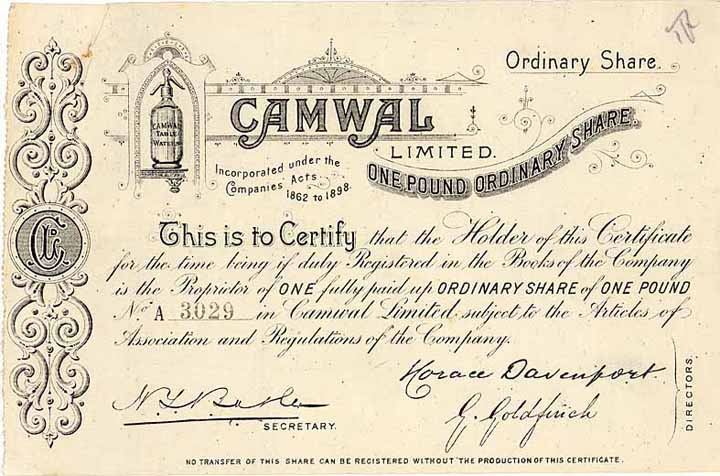 Ordinary Share.
CAMWAL TABLE WATERS
CAMWAL
LIMITED.
Incorporated under the
Companies Acts
1862 to 1898.
ONE POUND ORDINARY SHARE.
This is to Certify that the Holder of this Certificate
for the time being if duly Registered in the Books of the Company
is the Proprietor of ONE fully paid up ORDINARY SHARE of ONE POUND
No. A 3029 in Camwal Limited subject to the Articles of
Association and Regulations of the Company.
Horace Davenport
G. Goldfinch
DIRECTORS.
SECRETARY.
NO TRANSFER OF THIS SHARE CAN BE REGISTERED WITHOUT THE PRODUCTION OF THIS CERTIFICATE.